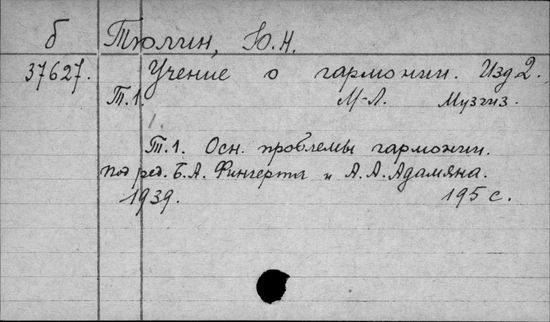 б Тюлин, Ю.Н.
37627. Учение о гармонии. Изд 2.
Т.1. М-Л. Музгиз.
1.
Т.1. Осн. проблемы гармонии.
под ред. Б.А. Фингерта и А.А. Адамяна.
1939. 195 с.